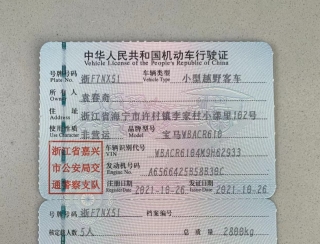 中华人民共和国机动车行驶证
Vehicle License of the People's Republic of China
号牌号码 浙F7NX51 车辆类型 小型越野客车
Plate No. Vehicle Type
所有人 袁春奇
Owner
住址 浙江省海宁市许村镇李家村小漾里162号
Address
使用性质 非营运 品牌型号 宝马WBACR610
Use Character Model
浙江省嘉兴
市公安局交
通警察支队
车辆识别代号 WBACR6104M9H62933
VIN
发动机号码 A6566425B58B30C
Engine No.
注册日期 2021-10-26 发证日期 2021-10-26
Register Date Issue Date
号牌号码 浙F7NX51 档案编号
核定载人数 5人 总质量 2800kg